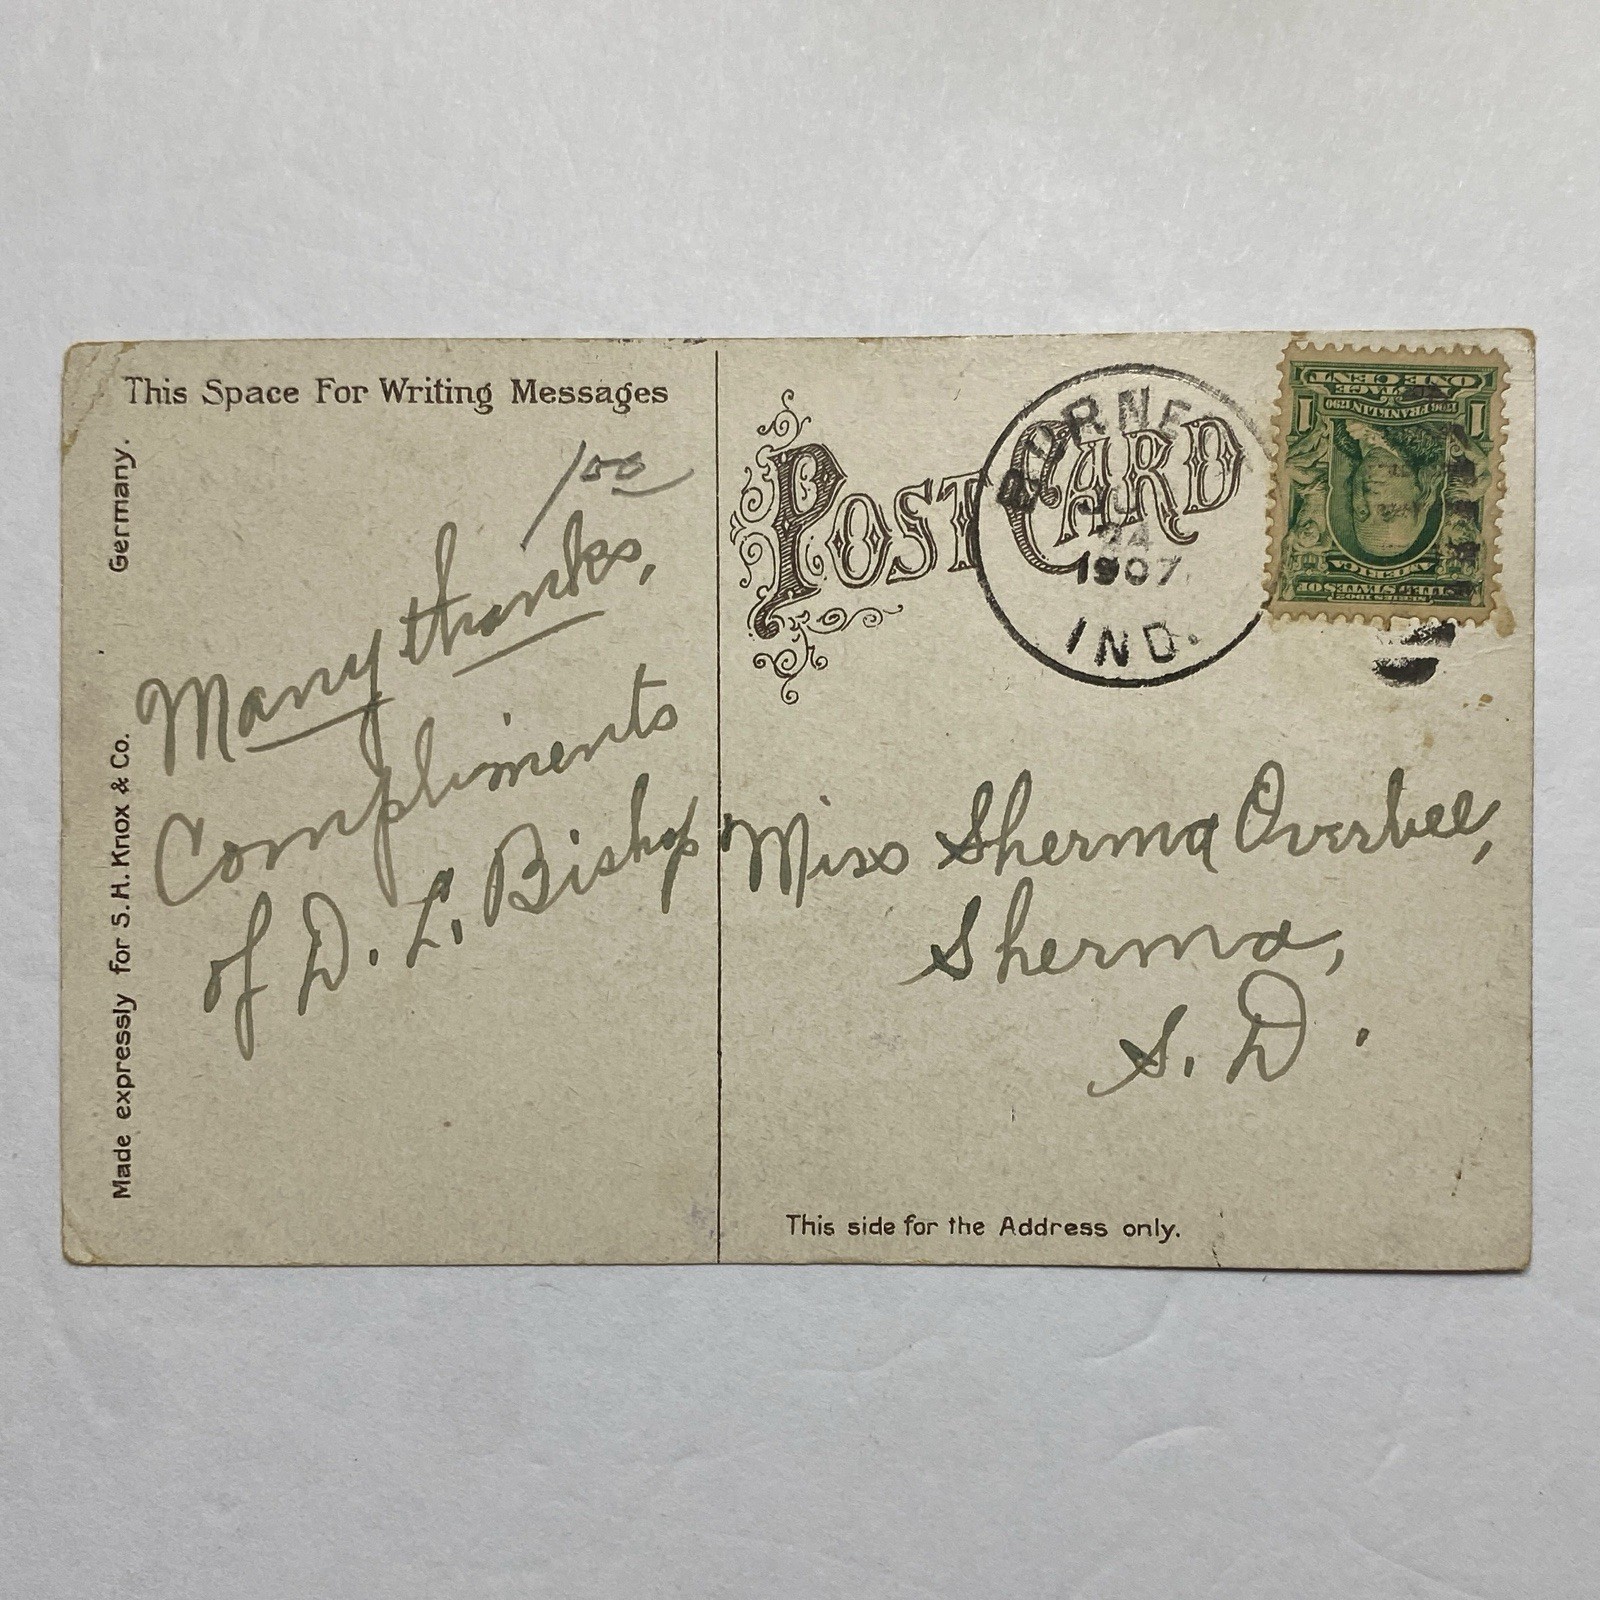 This Space For Writing Messages
100
Many thanks,
Compliments
of D. L. Bishop
Made expressly for S. H. Knox & Co. Germany.
POST CARD
24
1907
IND.
ONE CENT
1 1
POSTAGE
1706 FRANKLIN 1790
AMERICA
SERIES 1902
Miss Sherma Overbee,
Sherma,
S. D.
This side for the Address only.